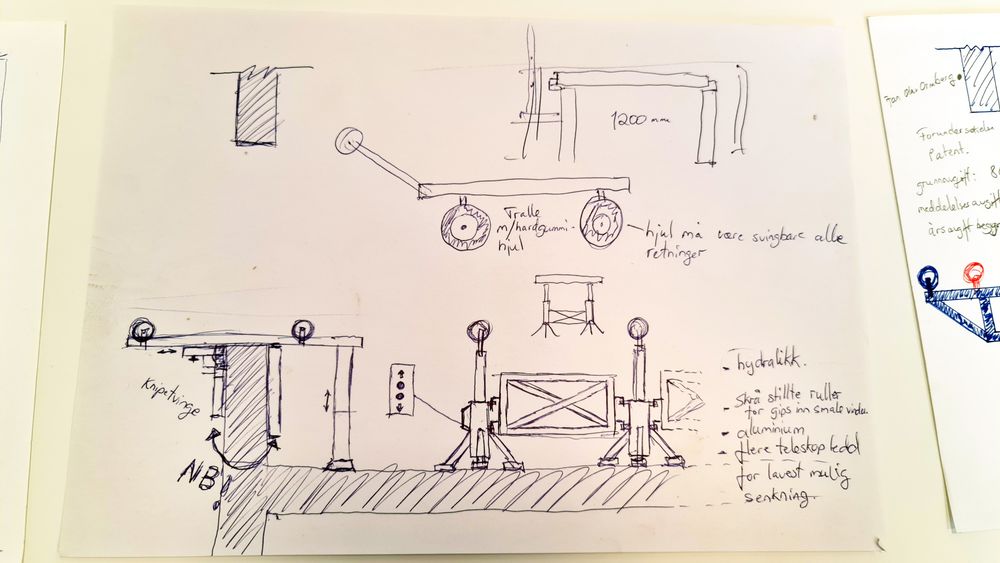 1200 mm
Tralle
m/hardgummi-
hjul
hjul må være svingbare alle
retninger
Knipetvinge
NB!
- hydralikk.
- Skrå stillte ruller
for gips inn smale vindu.
- aluminium
- flere teleskop ledd
for lavest mulig
senkning.
Forundersøkelse
Patent.
grunnavgift: 8
meddelelsesavgift
årsavgift